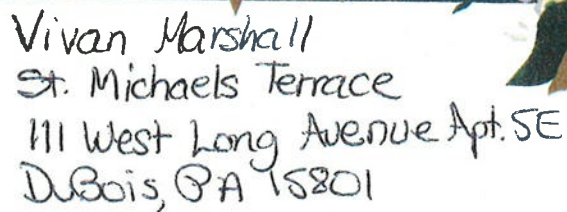 Vivan Marshall
St. Michaels Terrace
111 West Long Avenue Apt. 5E
DuBois, PA 15801